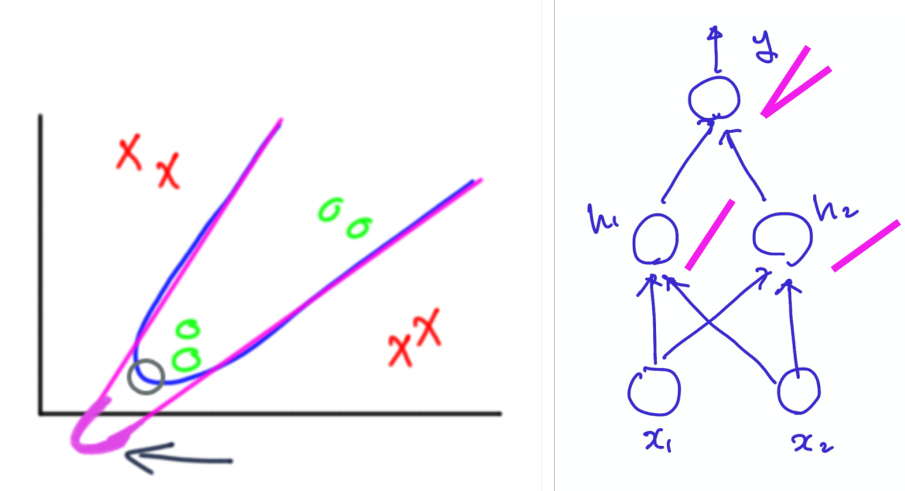 x x
o o
o
o
x x
y
h₁
h₂
x₁
x₂